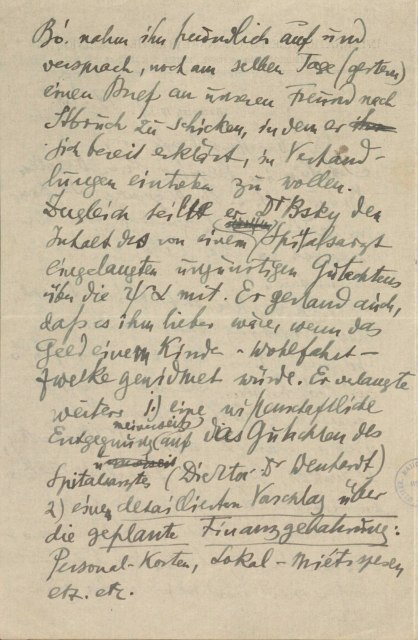 Bö. nahm ihn freundlich auf und
versprach, noch am selben Tage (gestern)
einen Brief an unseren Freund nach
Sbruck zu schicken, in dem er ihm
sich bereit erklärt, in Verhand-
lungen eintreten zu wollen.
Zugleich teilte er Dr Bsky den
Inhalt des von einem Spitalsarzt
eingelangten ungünstigen Gutachtens
über die ΨA mit. Er gestand auch,
daß es ihm lieber wäre, wenn das
Geld einem Kinder-Wohlfahrt-
zwecke gewidmet würde. Er verlangte
weiters 1.) eine wissenschaftliche
Entgegnung meinerseits auf das Gutachten des
Spitalarztes (Direktor Dr
2) einen detaillierten Vorschlag über
die geplante Finanzgebahrung:
Personal-Kosten, Lokal-mietspesen
etz. etc.